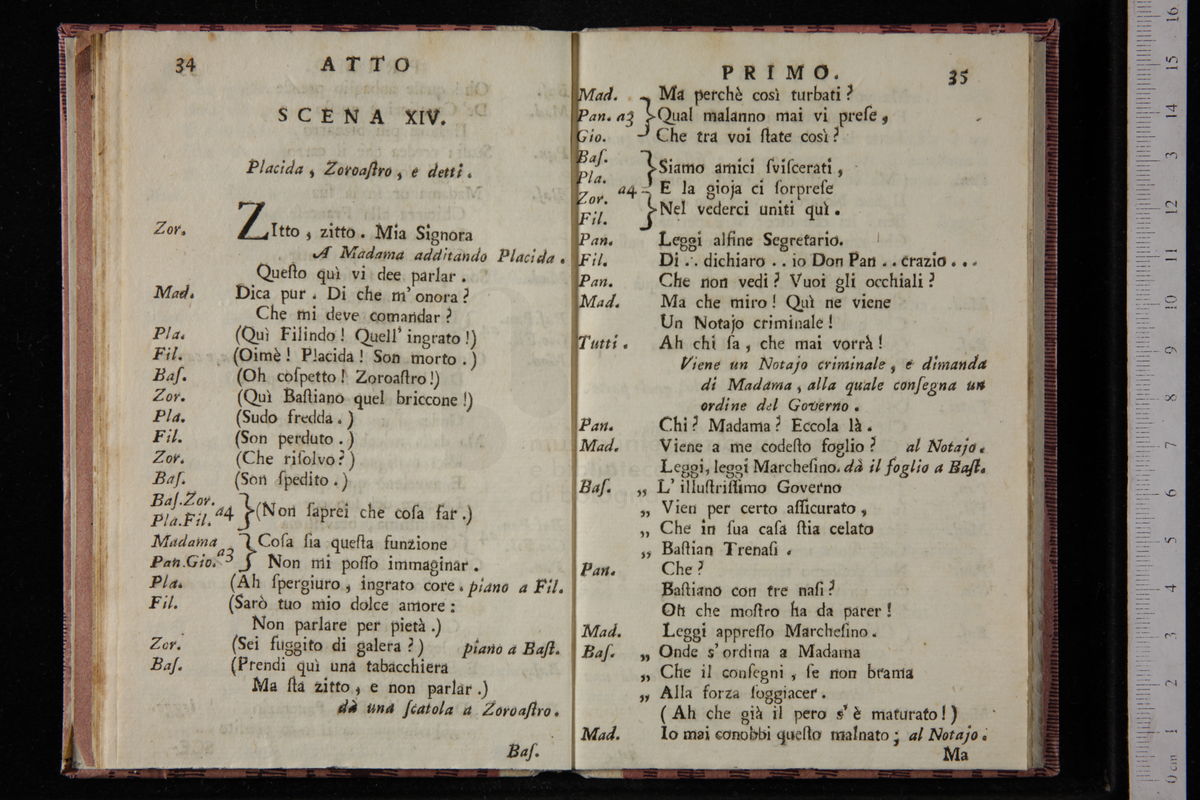 34
ATTO
SCENA XIV.
Placida, Zoroaſtro, e detti.
Zor. ZItto, zitto. Mia Signora
A Madama additando Placida.
Queſto quì vi dee parlar.
Mad. Dica pur. Di che m'onora?
Che mi deve comandar?
Pla. (Quì Filindo! Quell' ingrato!)
Fil. (Oimè! Placida! Son morto.)
Baſ. (Oh coſpetto! Zoroaſtro!)
Zor. (Quì Baſtiano quel briccone!)
Pla. (Sudo fredda.)
Fil. (Son perduto.)
Zor. (Che riſolvo?)
Baſ. (Son ſpedito.)
Baſ.Zor.
Pla.Fil. a4 } (Non ſaprei che coſa far.)
Madama } Coſa ſia queſta funzione
Pan.Gio. a3 } Non mi poſſo immaginar.
Pla. (Ah ſpergiuro, ingrato core. piano a Fil.
Fil. (Sarò tuo mio dolce amore:
Non parlare per pietà.)
Zor. (Sei fuggito di galera?) piano a Baſt.
Baſ. (Prendi quì una tabacchiera
Ma ſta zitto, e non parlar.)
dà una ſcatola a Zoroaſtro.
Baſ.
PRIMO.
35
Mad. Ma perchè così turbati?
Pan. a3 } Qual malanno mai vi preſe,
Gio. Che tra voi ſtate così?
Baſ.
Pla. } Siamo amici ſviſcerati,
Zor. a4 E la gioja ci ſorpreſe
Fil. } Nel vederci uniti quì.
Pan. Leggi alfine Segretario.
Fil. Di.. dichiaro.. io Don Pan.. crazio...
Pan. Che non vedi? Vuoi gli occhiali?
Mad. Ma che miro! Quì ne viene
Un Notajo criminale!
Tutti. Ah chi ſa, che mai vorrà!
Viene un Notajo criminale, e dimanda
di Madama, alla quale conſegna un
ordine del Governo.
Pan. Chi? Madama? Eccola là.
Mad. Viene a me codeſto foglio? al Notajo.
Leggi, leggi Marcheſino. dà il foglio a Baſt.
Baſ. „ L' illuſtriſſimo Governo
„ Vien per certo aſſicurato,
„ Che in ſua caſa ſtia celato
„ Baſtian Trenaſi.
Pan. Che?
Baſtiano con tre naſi?
Oh che moſtro ha da parer!
Mad. Leggi appreſſo Marcheſino.
Baſ. „ Onde s'ordina a Madama
„ Che il conſegni, ſe non brama
„ Alla forza ſoggiacer.
(Ah che già il pero s'è maturato!)
Mad. Io mai conobbi queſto malnato; al Notajo.
Ma